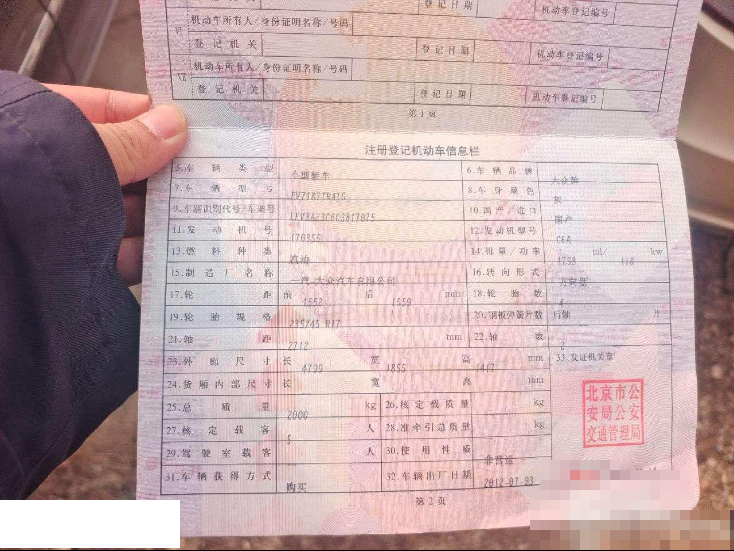 登记日期 机动车登记编号
机动车所有人/身份证明名称/号码
登记机关 登记日期 机动车登记编号
机动车所有人/身份证明名称/号码
登记机关 登记日期 机动车登记编号
第1页
注册登记机动车信息栏
5.车辆类型 小型轿车 6.车辆品牌 大众牌
7.车辆型号 8.车身颜色 灰
9.车辆识别代号/车架号 10.国产/进口 国产
11.发动机号 12.发动机型号 CEA
13.燃料种类 汽油 14.排量/功率 1798 ml/ 118 kw
15.制造厂名称 一汽-大众汽车有限公司 16.转向形式 方向盘
17.轮距 前 1552 后 1559 mm 18.轮胎数 4
19.轮胎规格 235/45 R17 20.钢板弹簧片数 后轴 片
21.轴距 2712 mm 22.轴数 2
23.外廓尺寸 长 4799 宽 1855 高 1417 mm 33.发证机关章
24.货厢内部尺寸 长 宽 高 mm
25.总质量 2000 kg 26.核定载质量 kg
27.核定载客 5 人 28.准牵引总质量 kg
29.驾驶室载客 人 30.使用性质 非营运
31.车辆获得方式 购买 32.车辆出厂日期 2012-07-03
北京市公
安局公安
交通管理局
第2页